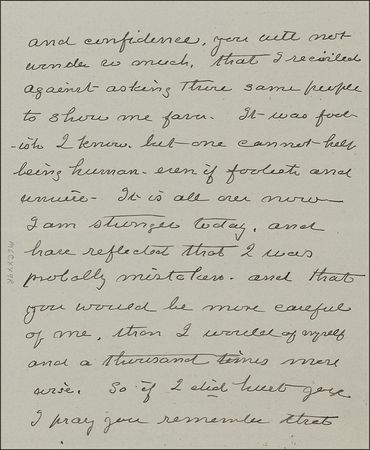 and confidence, you will not
wonder so much, that I recoiled
against asking these same people
to show me favor. It was fool-
-ish I know. but one cannot help
being human - even if foolish and
unwise - It is all over now -
I am stronger today, and
have reflected that I was
probably mistaken - and that
you would be more careful
of me, than I would of myself
and a thousand times more
wise. So if I did hurt you
I pray you remember that